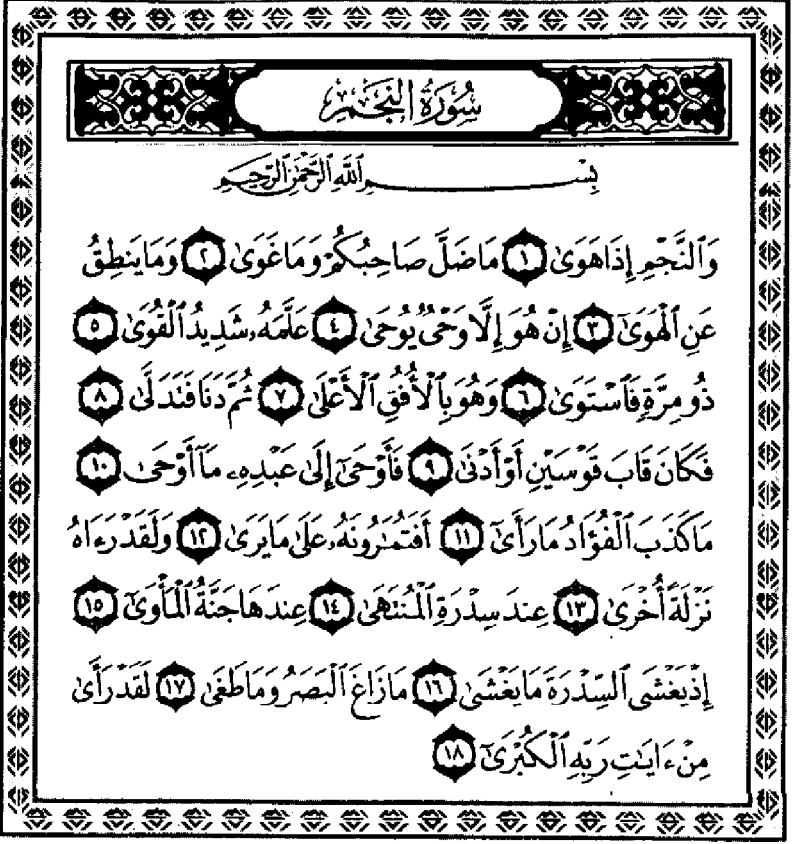 سُورَةُ النَّجْمِ
بِسْمِ ٱللَّهِ ٱلرَّحْمَٰنِ ٱلرَّحِيمِ
وَٱلنَّجْمِ إِذَا هَوَىٰ ١ مَا ضَلَّ صَاحِبُكُمْ وَمَا غَوَىٰ ٢ وَمَا يَنطِقُ
عَنِ ٱلْهَوَىٰٓ ٣ إِنْ هُوَ إِلَّا وَحْىٌ يُوحَىٰ ٤ عَلَّمَهُۥ شَدِيدُ ٱلْقُوَىٰ ٥
ذُو مِرَّةٍ فَٱسْتَوَىٰ ٦ وَهُوَ بِٱلْأُفُقِ ٱلْأَعْلَىٰ ٧ ثُمَّ دَنَا فَتَدَلَّىٰ ٨
فَكَانَ قَابَ قَوْسَيْنِ أَوْ أَدْنَىٰ ٩ فَأَوْحَىٰٓ إِلَىٰ عَبْدِهِۦ مَآ أَوْحَىٰ ١٠
مَا كَذَبَ ٱلْفُؤَادُ مَا رَأَىٰٓ ١١ أَفَتُمَٰرُونَهُۥ عَلَىٰ مَا يَرَىٰ ١٢ وَلَقَدْ رَءَاهُ
نَزْلَةً أُخْرَىٰ ١٣ عِندَ سِدْرَةِ ٱلْمُنتَهَىٰ ١٤ عِندَهَا جَنَّةُ ٱلْمَأْوَىٰٓ ١٥
إِذْ يَغْشَى ٱلسِّدْرَةَ مَا يَغْشَىٰ ١٦ مَا زَاغَ ٱلْبَصَرُ وَمَا طَغَىٰ ١٧ لَقَدْ رَأَىٰ
مِنْ ءَايَٰتِ رَبِّهِ ٱلْكُبْرَىٰٓ ١٨